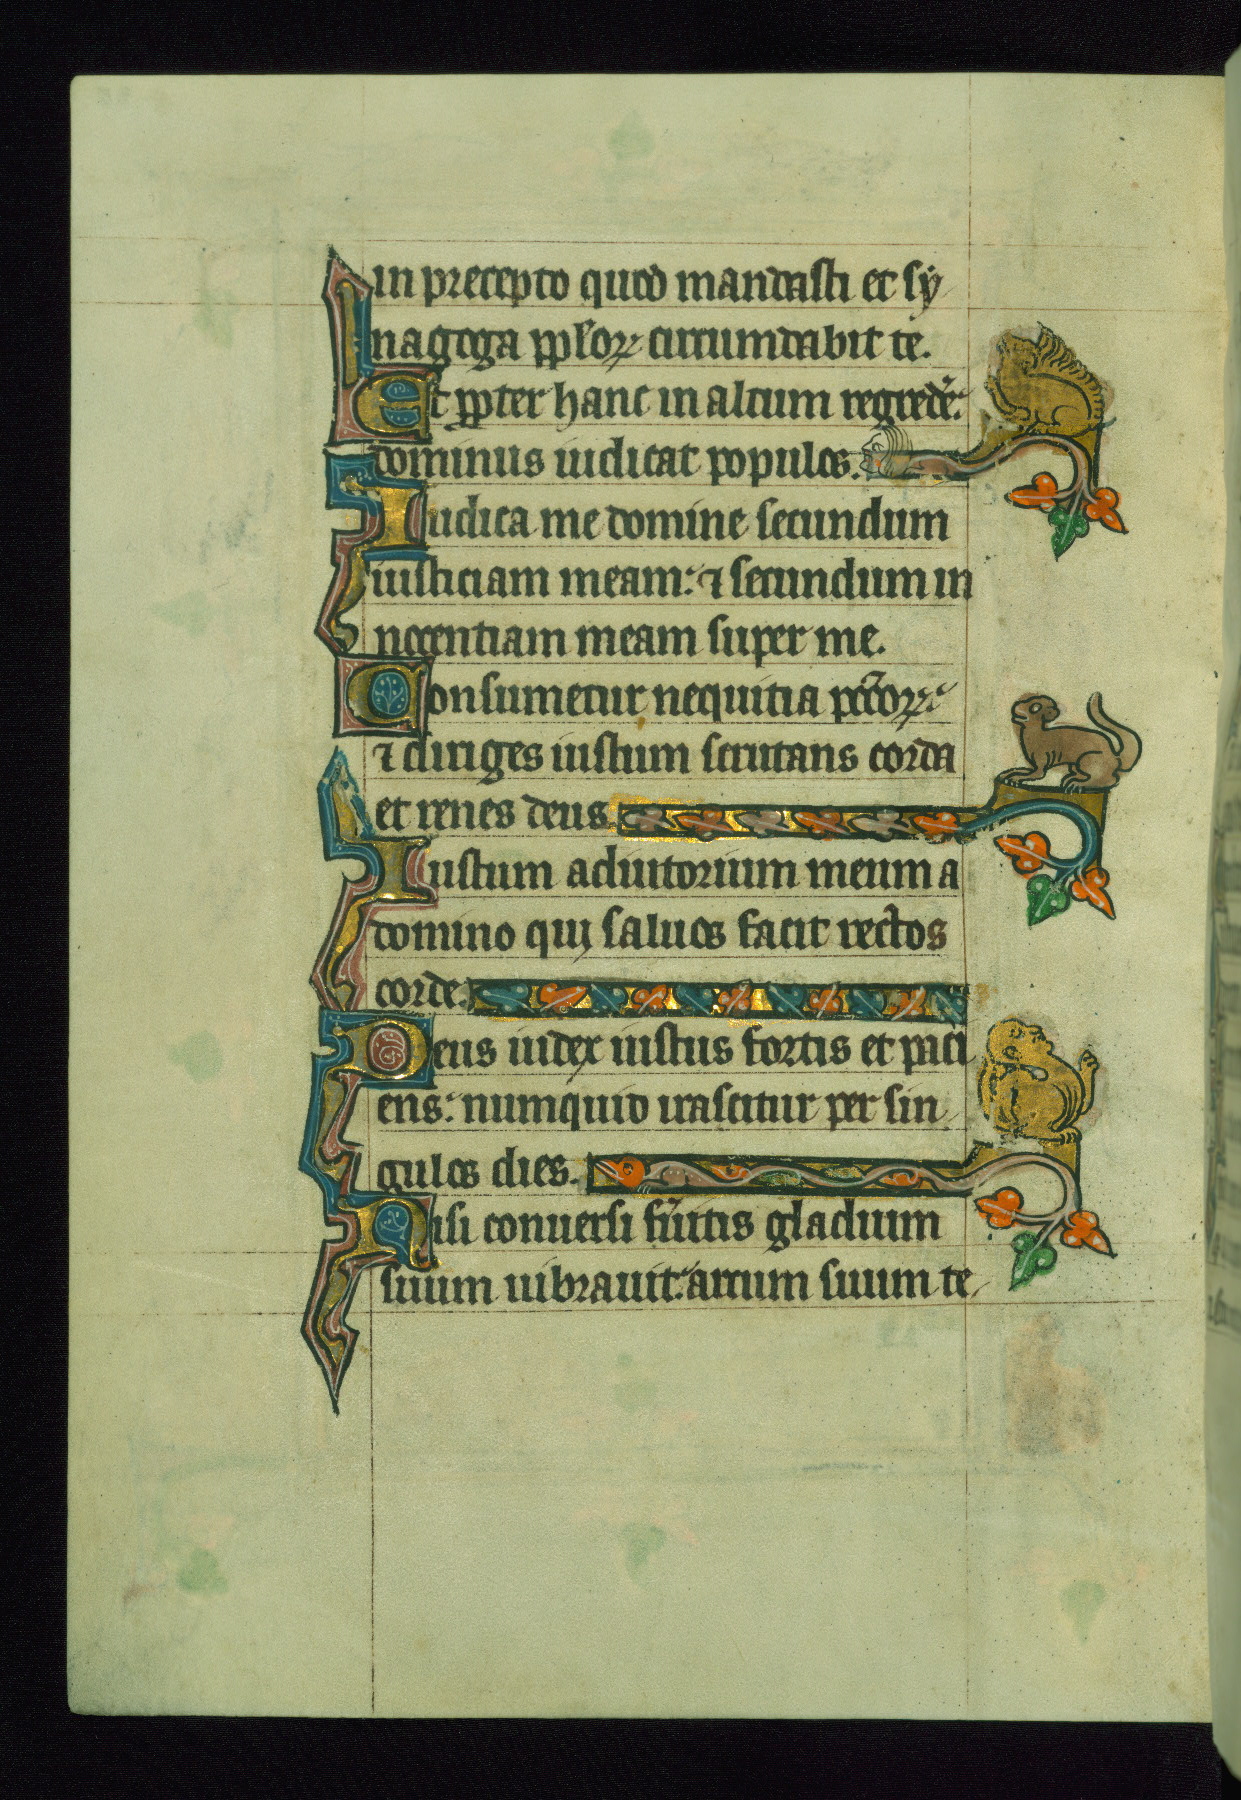 in precepto quod mandasti et sy
nagoga pplorꝝ circumdabit te.
Et ꝓpter hanc in altum regredeꝛ̃:
dominus iudicat populos.
Iudica me domine secundum
iusticiam meam: ⁊ secundum in
nocentiam meam super me.
Consumetur nequitia pccõrꝝ:
⁊ diriges iustum scrutans corda
et renes deus.
Iustum adiutorium meum a
domino qui saluos facit rectos
corde.
Deus iudex iustus fortis et paci
ens: numquid irascitur per sin
gulos dies.
Nisi conuersi fũitis gladium
suum uibrauit: arcum suum te